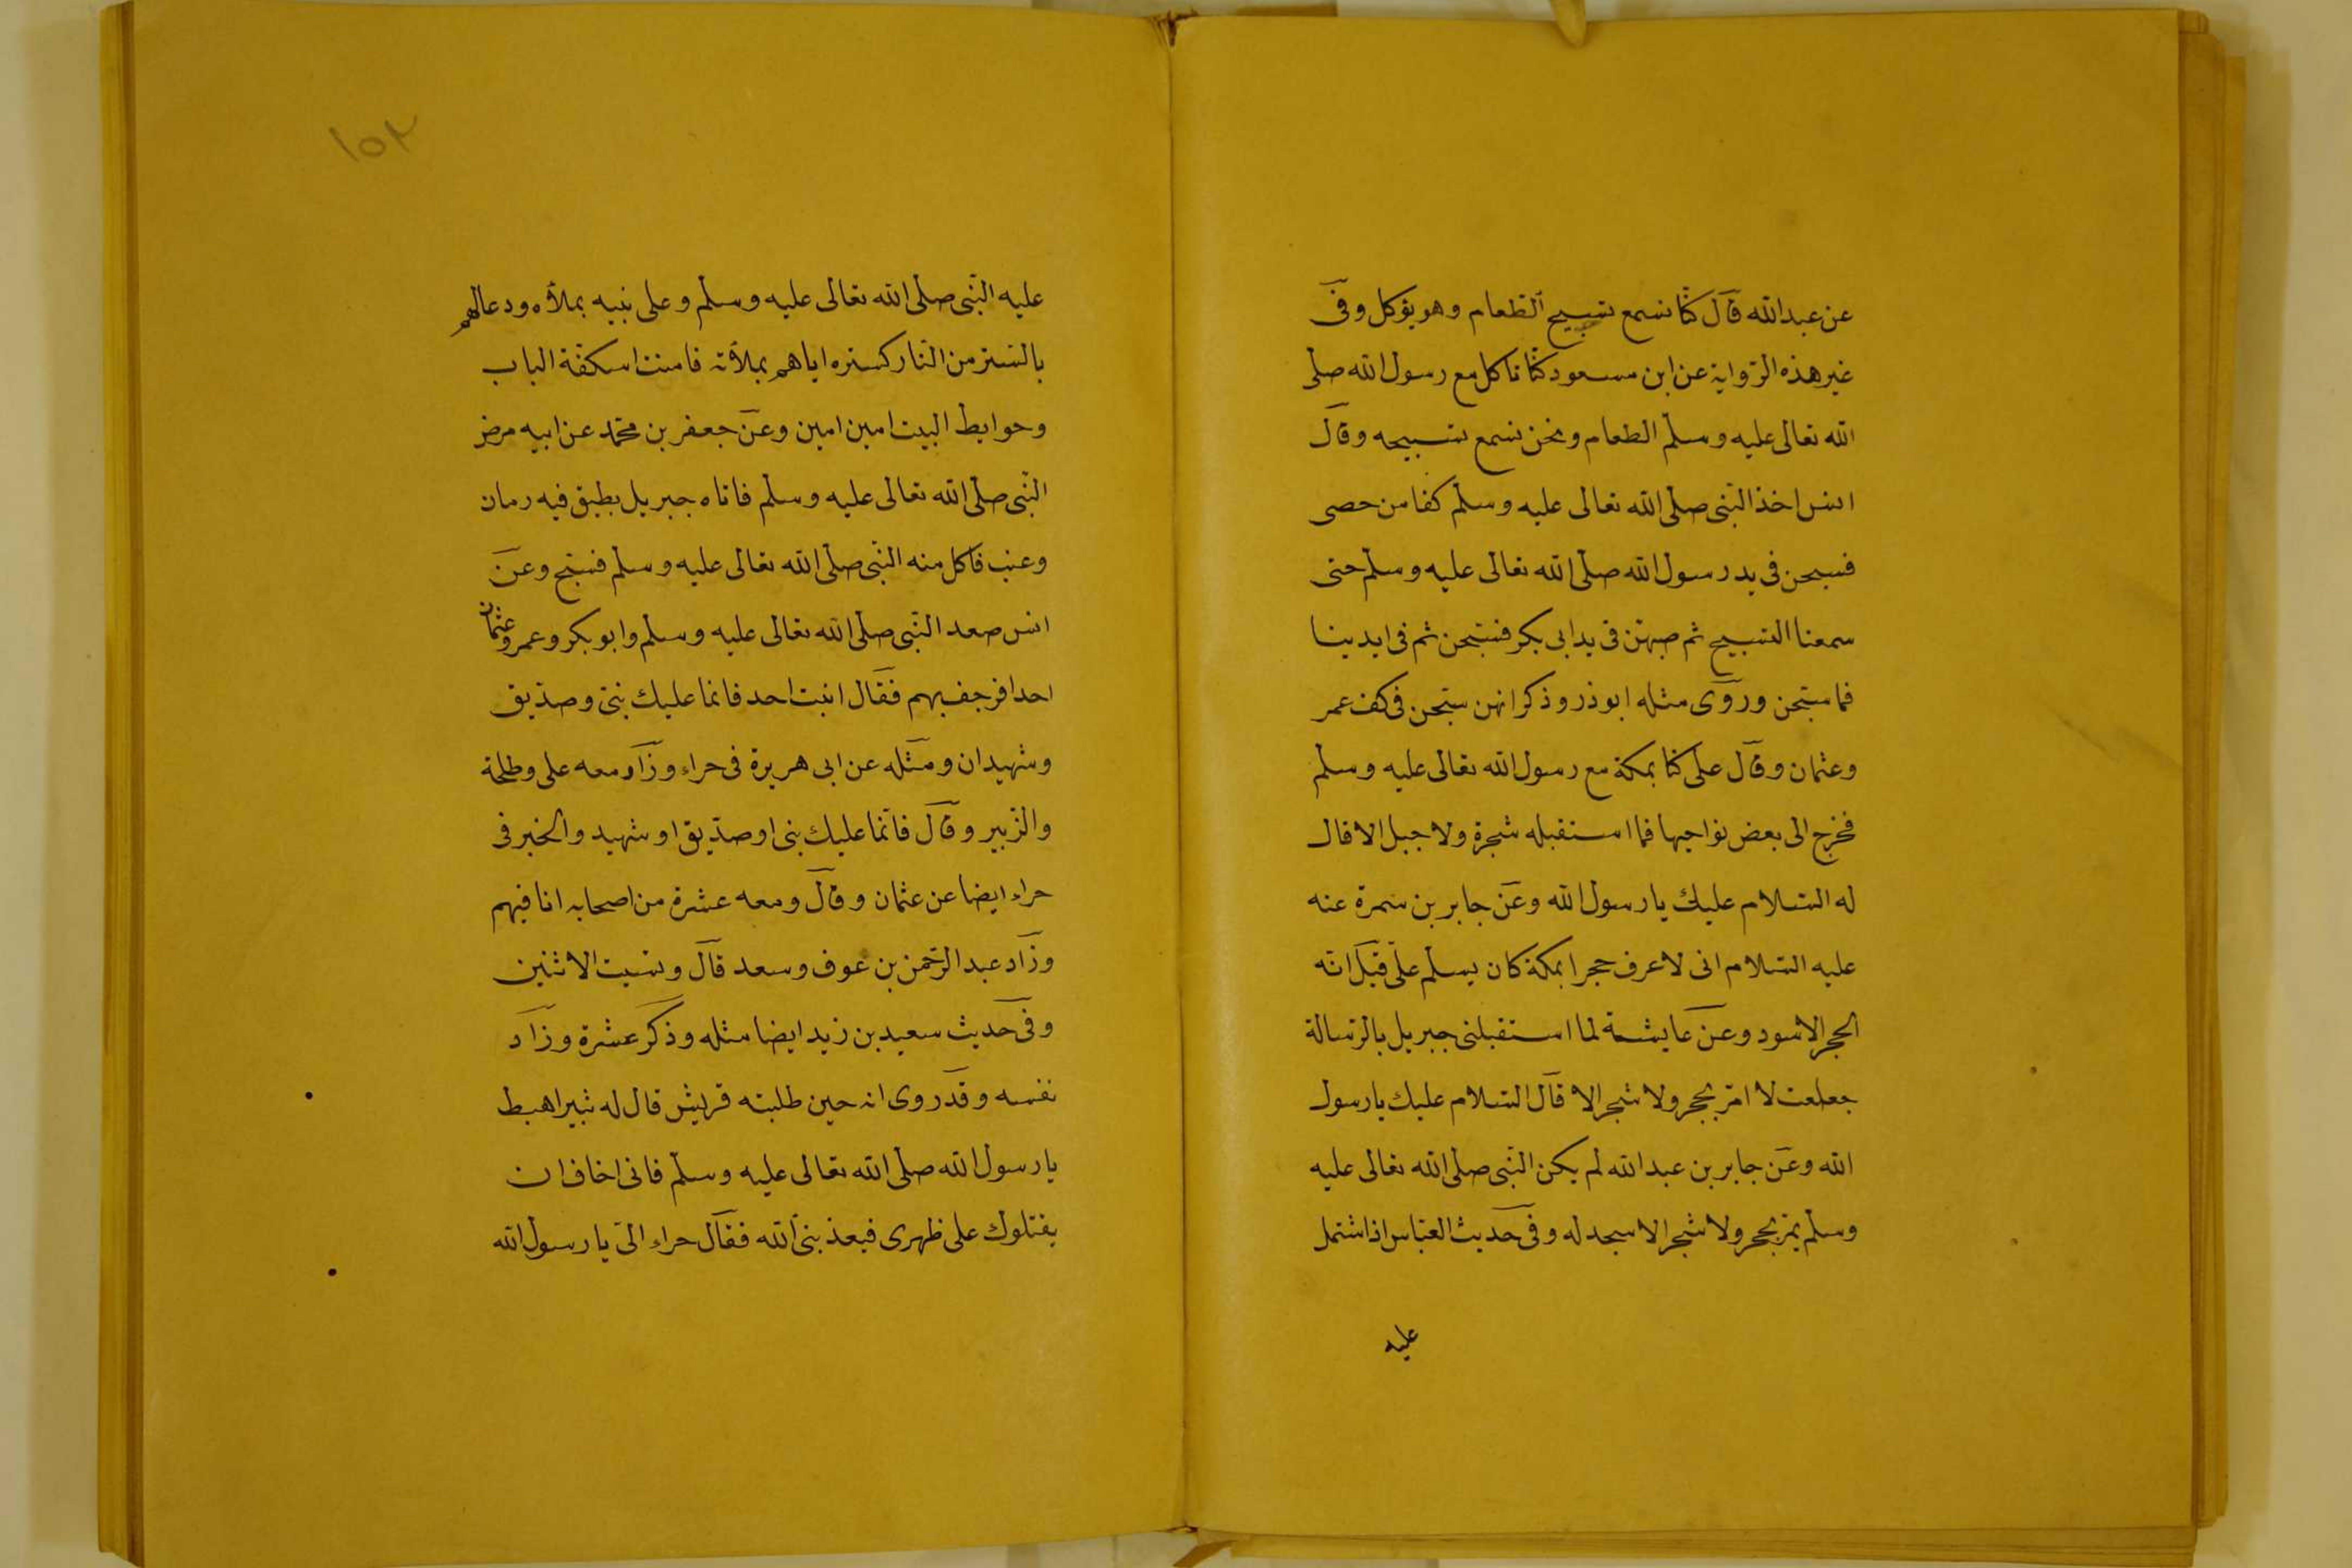 عن عبدالله قال كنّا نسمع تسبيح الطعام وهو يؤكل وفى
غير هذه الرّواية عن ابن مسعود كنّا ناكل مع رسول الله صلى
الله تعالى عليه وسلّم الطعام ونحن نسمع تسبيحه وقال
انس اخذ النّبى صلّى الله تعالى عليه وسلّم كفا من حصى
فسبحن فى يد رسول الله صلّى الله تعالى عليه وسلّم حتى
سمعنا التسبيح ثم صبهن فى يد ابى بكر فسبّحن ثم فى ايدينا
فما سبّحن وروى مثله ابوذر وذكر انهن سبّحن فى كف عمر
وعثمان وقال على كنّا بمكة مع رسول الله تعالى عليه وسلّم
فخرج الى بعض نواحيها فما استقبله شجرة ولا جبل الا قال
له السّلام عليك يا رسول الله وعن جابر بن سمرة عنه
عليه السّلام انى لاعرف حجرا بمكة كان يسلّم علىّ قيل انّه
الحجر الاسود وعن عايشة لما استقبلنى جبريل بالرّسالة
جعلت لا امرّ بحجر ولا شجر الا قال السّلام عليك يا رسول
الله وعن جابر بن عبدالله لم يكن النّبى صلّى الله تعالى عليه
وسلّم يمرّ بحجر ولا شجر الا سجد له وفى حديث العبّاس اذ اشتمل
عليه
١٥٢
عليه النّبى صلّى الله تعالى عليه وسلّم وعلى بنيه بملأه ودعا لهم
بالستر من النّار كستره اياهم بملأته فامنت اسكفّة الباب
وحوايط البيت امين امين وعن جعفر بن محمّد عن ابيه مرض
النّبى صلّى الله تعالى عليه وسلّم فاتاه جبريل بطبق فيه رمان
وعنب فاكل منه النّبى صلّى الله تعالى عليه وسلّم فسبّح وعن
انس صعد النّبى صلّى الله تعالى عليه وسلّم وابو بكر وعمر وعثمان
احدا فرجف بهم فقال اثبت احد فانما عليك نبىّ وصدّيق
وشهيدان ومثله عن ابى هريرة فى حراء وزاد معه على وطلحة
والزّبير وقال فانّما عليك نبى او صدّيق او شهيد والخبر فى
حراء ايضا عن عثمان وقال ومعه عشرة من اصحابه انا فيهم
وزاد عبد الرّحمن بن عوف وسعد قال ونسيت الاثنين
وفى حديث سعيد بن زيد ايضا مثله وذكر عشرة وزاد
نفسه وقد روى انه حين طلبته قريش قال له ثبير اهبط
يا رسول الله صلّى الله تعالى عليه وسلّم فانى اخاف ان
يقتلوك على ظهرى فيعذبنى الله فقال حراء الىّ يا رسول الله